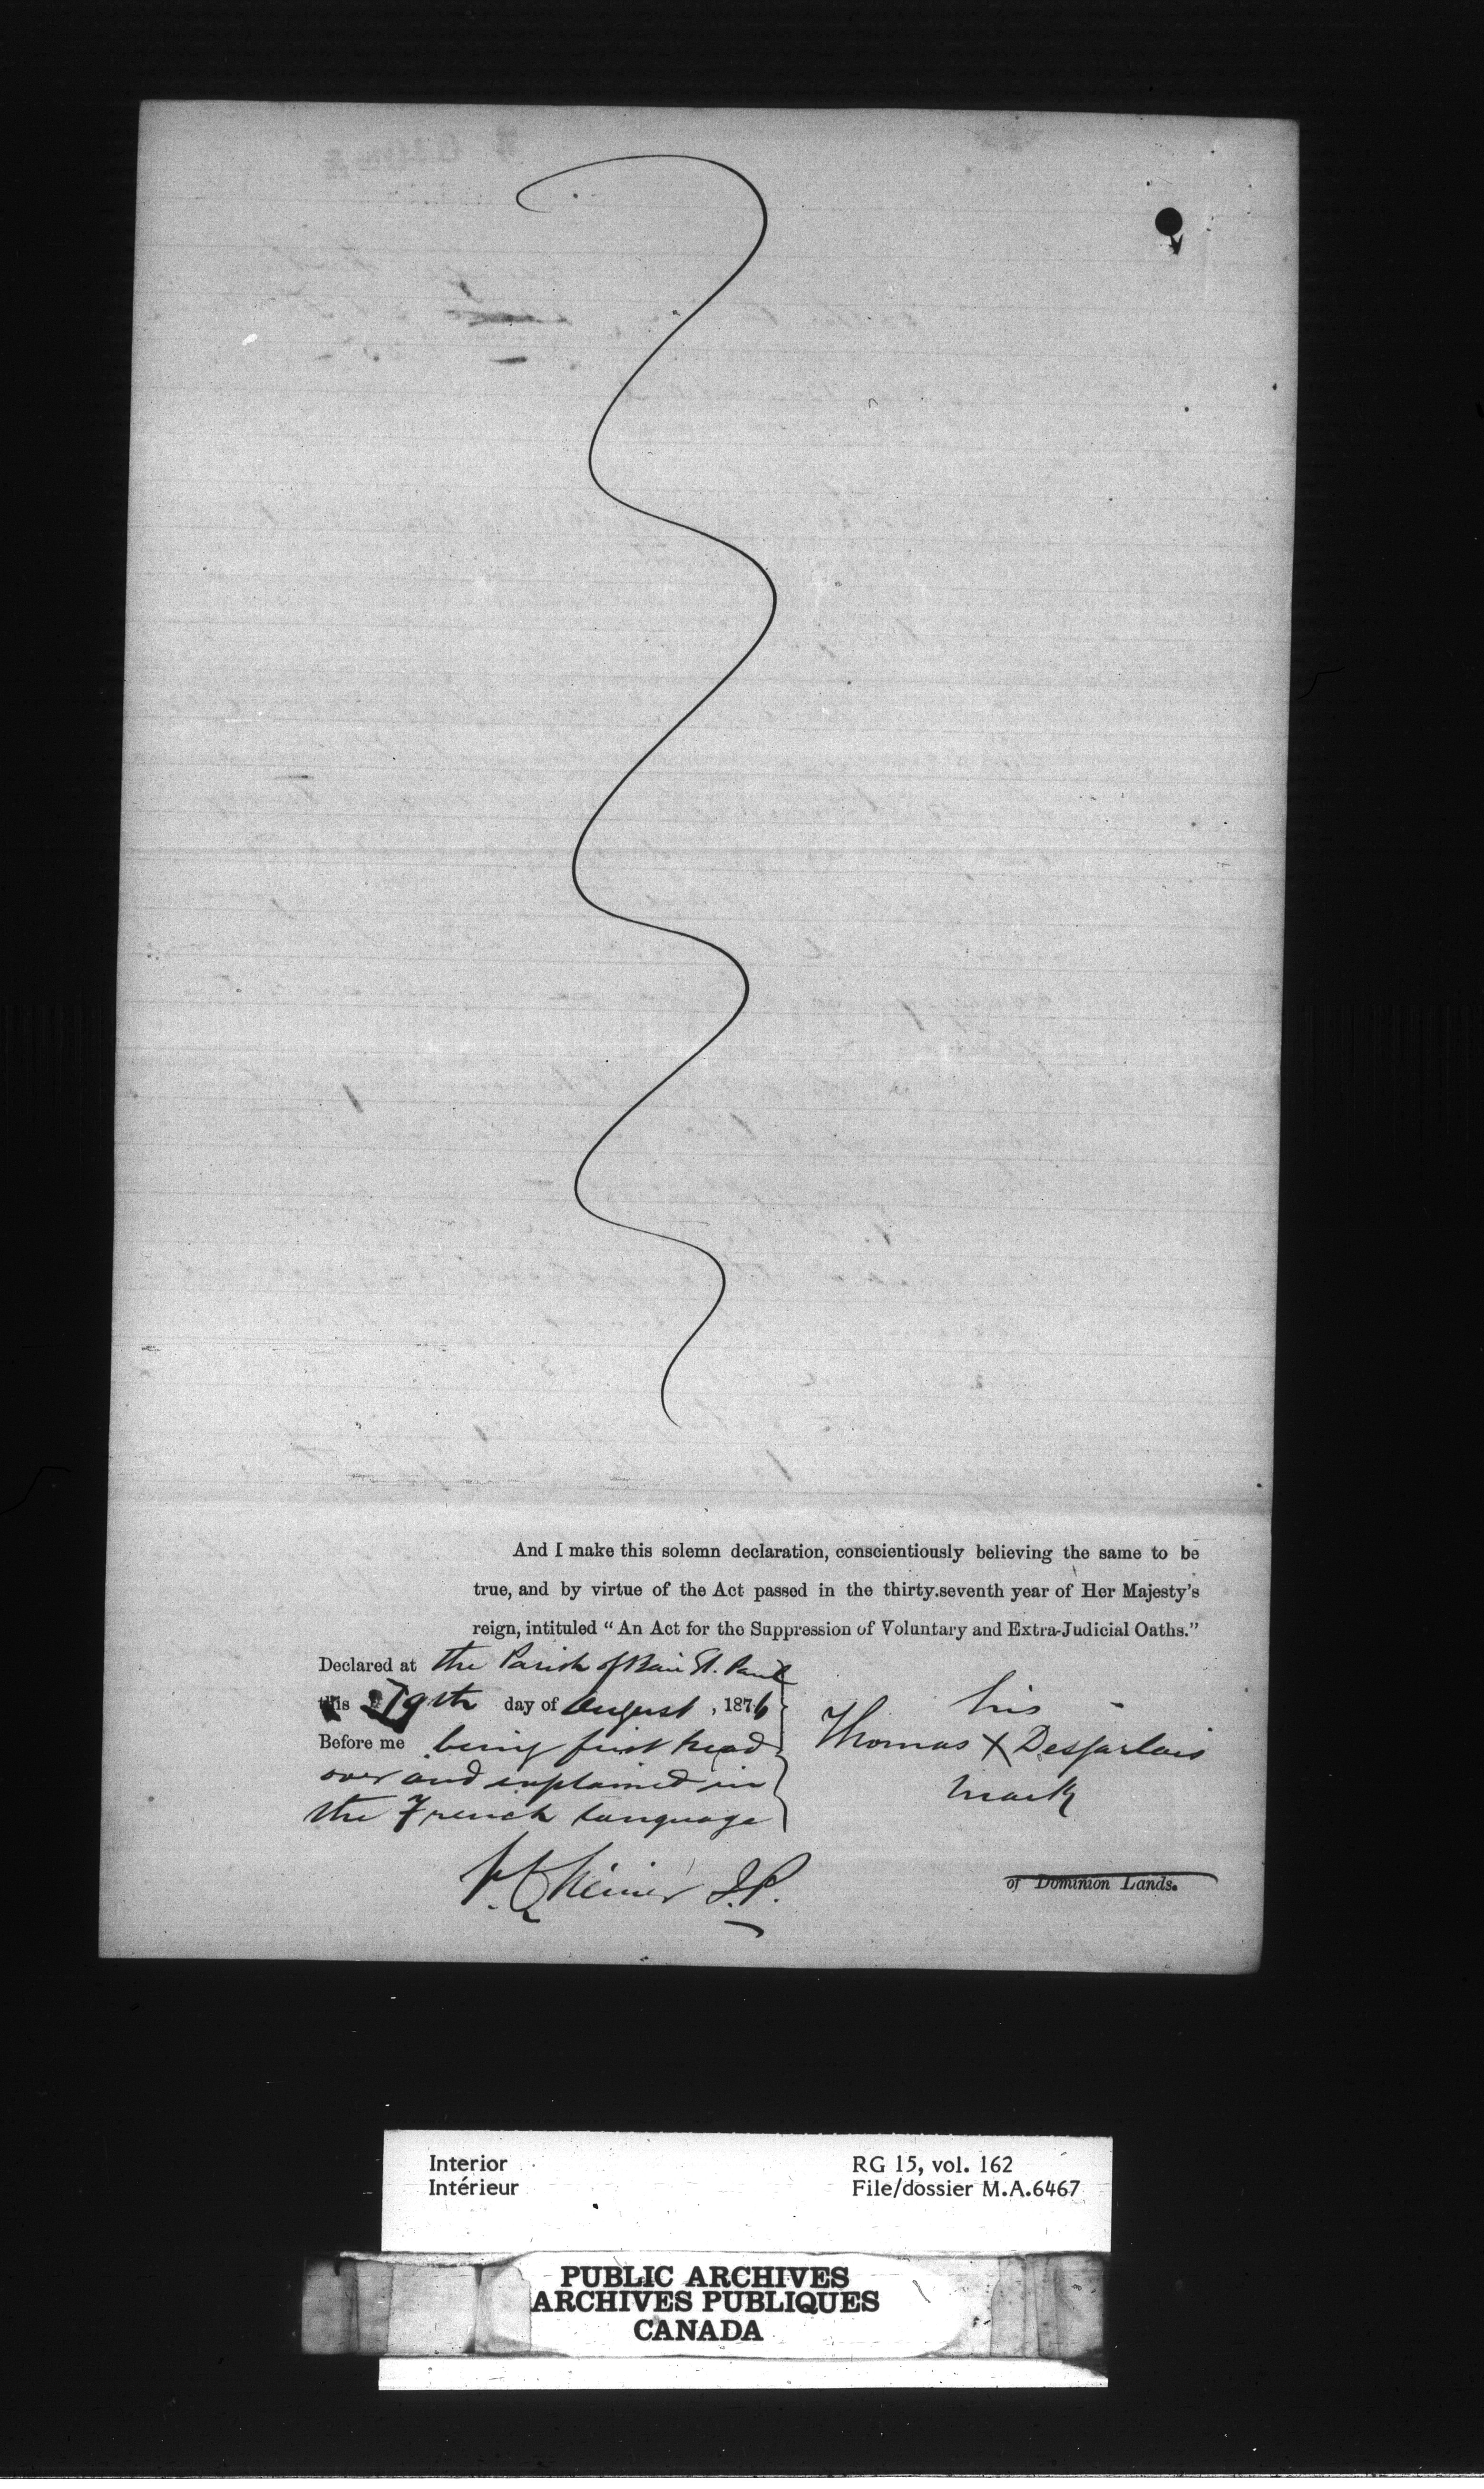 And I make this solemn declaration, conscientiously believing the same to be
true, and by virtue of the Act passed in the thirty.seventh year of Her Majesty's
reign, intituled "An Act for the Suppression of Voluntary and Extra-Judicial Oaths."
Declared at the Parish of Baie St. Paul
this 19th day of August, 1876
Before me being first read
over and explained in
the French language
his
Thomas X Desjarlais
mark
J.P.
of Dominion Lands.
Interior
Intérieur
RG 15, vol. 162
File/dossier M.A.6467
PUBLIC ARCHIVES
ARCHIVES PUBLIQUES
CANADA